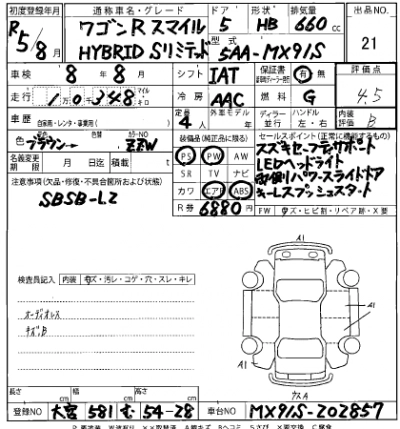 初度登録年月 通称車名・グレード ドア 形状 排気量 出品NO.
R5/8月 ワゴンRスマイル 5 HB 660cc 21
HYBRID Sリミテッド 型式 5AA-MX91S
車検 8年8月 シフト IAT 保証書 有 無 評価点
走行 10,348 マイル キロ 冷房 AAC 燃料 G 4.5
車歴 自家用・レンタ・事業用( ) 定員 4人 ディーラー 並行 ハンドル 左・右 内装評価 B
色 ブラウン→ 色替 カラーNO ZZW 装備品(純正品に限る) セールスポイント(正常に機能するもの)
名義変更期限 月 日迄 積載 t PS PW AW スズキセーフティサポート
注意事項(欠品・修復・不具合箇所および状態) SR TV ナビ LEDヘッドライト
SBSB-L2 カワ エアB ABS 両側パワースライドドア
R券 6880円 キーレスプッシュスタート
FW キズ・ヒビ割・リペア跡・X要
A1
検査員記入 内装 キズ・汚レ・コゲ・穴・スレ・キレ
オーディオレス A1
キズB
A1
長さ cm 幅 cm 高さ cm
登録NO 大宮 581 む 54-28 車台NO MX91S-202857